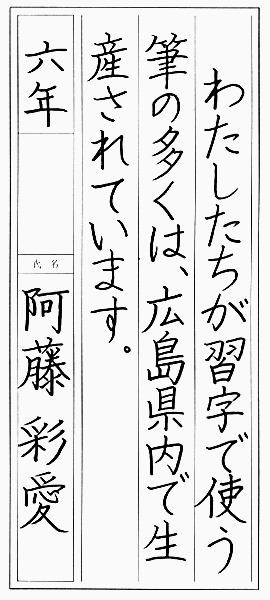 わたしたちが習字で使う
筆の多くは、広島県内で生
産されています。
六年
氏名
阿藤 彩愛